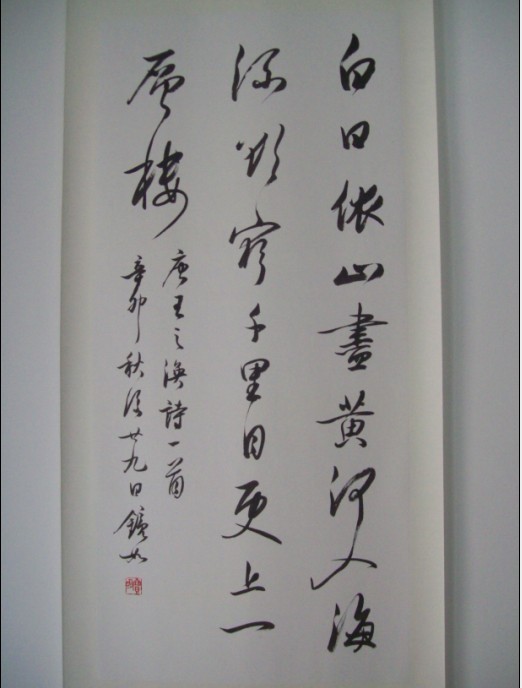 白日依山盡黄河入海
流欲窮千里目更上一
層樓
唐王之渙詩一首
辛卯秋後廿九日鏡如